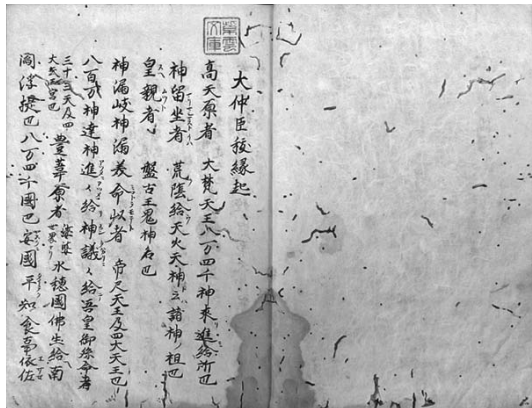 大仲臣祓縁起
高天原者 大梵天王八万四千神来進給所也
神留坐者 荒陰給天火天神之諸神ノ祖也
皇親者 盤古王鬼神名也
神漏岐神漏美命以者 帝尺天王及四大天王也
八百万神達神進々給神議々給吾皇御孫命者
三十三天及四
大天王宮也 豊葦原者 世界 水穂國佛生給南
閻浮提也八万四千國也安國平知食事依佐